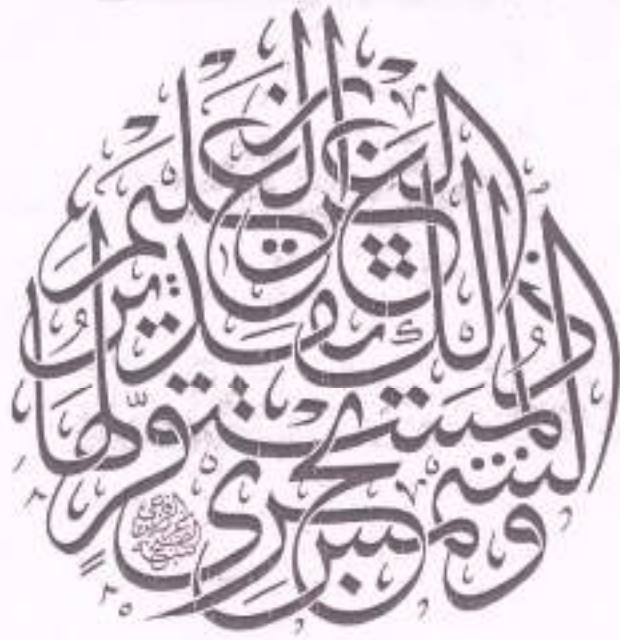 والشمس تجري لمستقر لها
ذلك تقدير
العزيز العليم